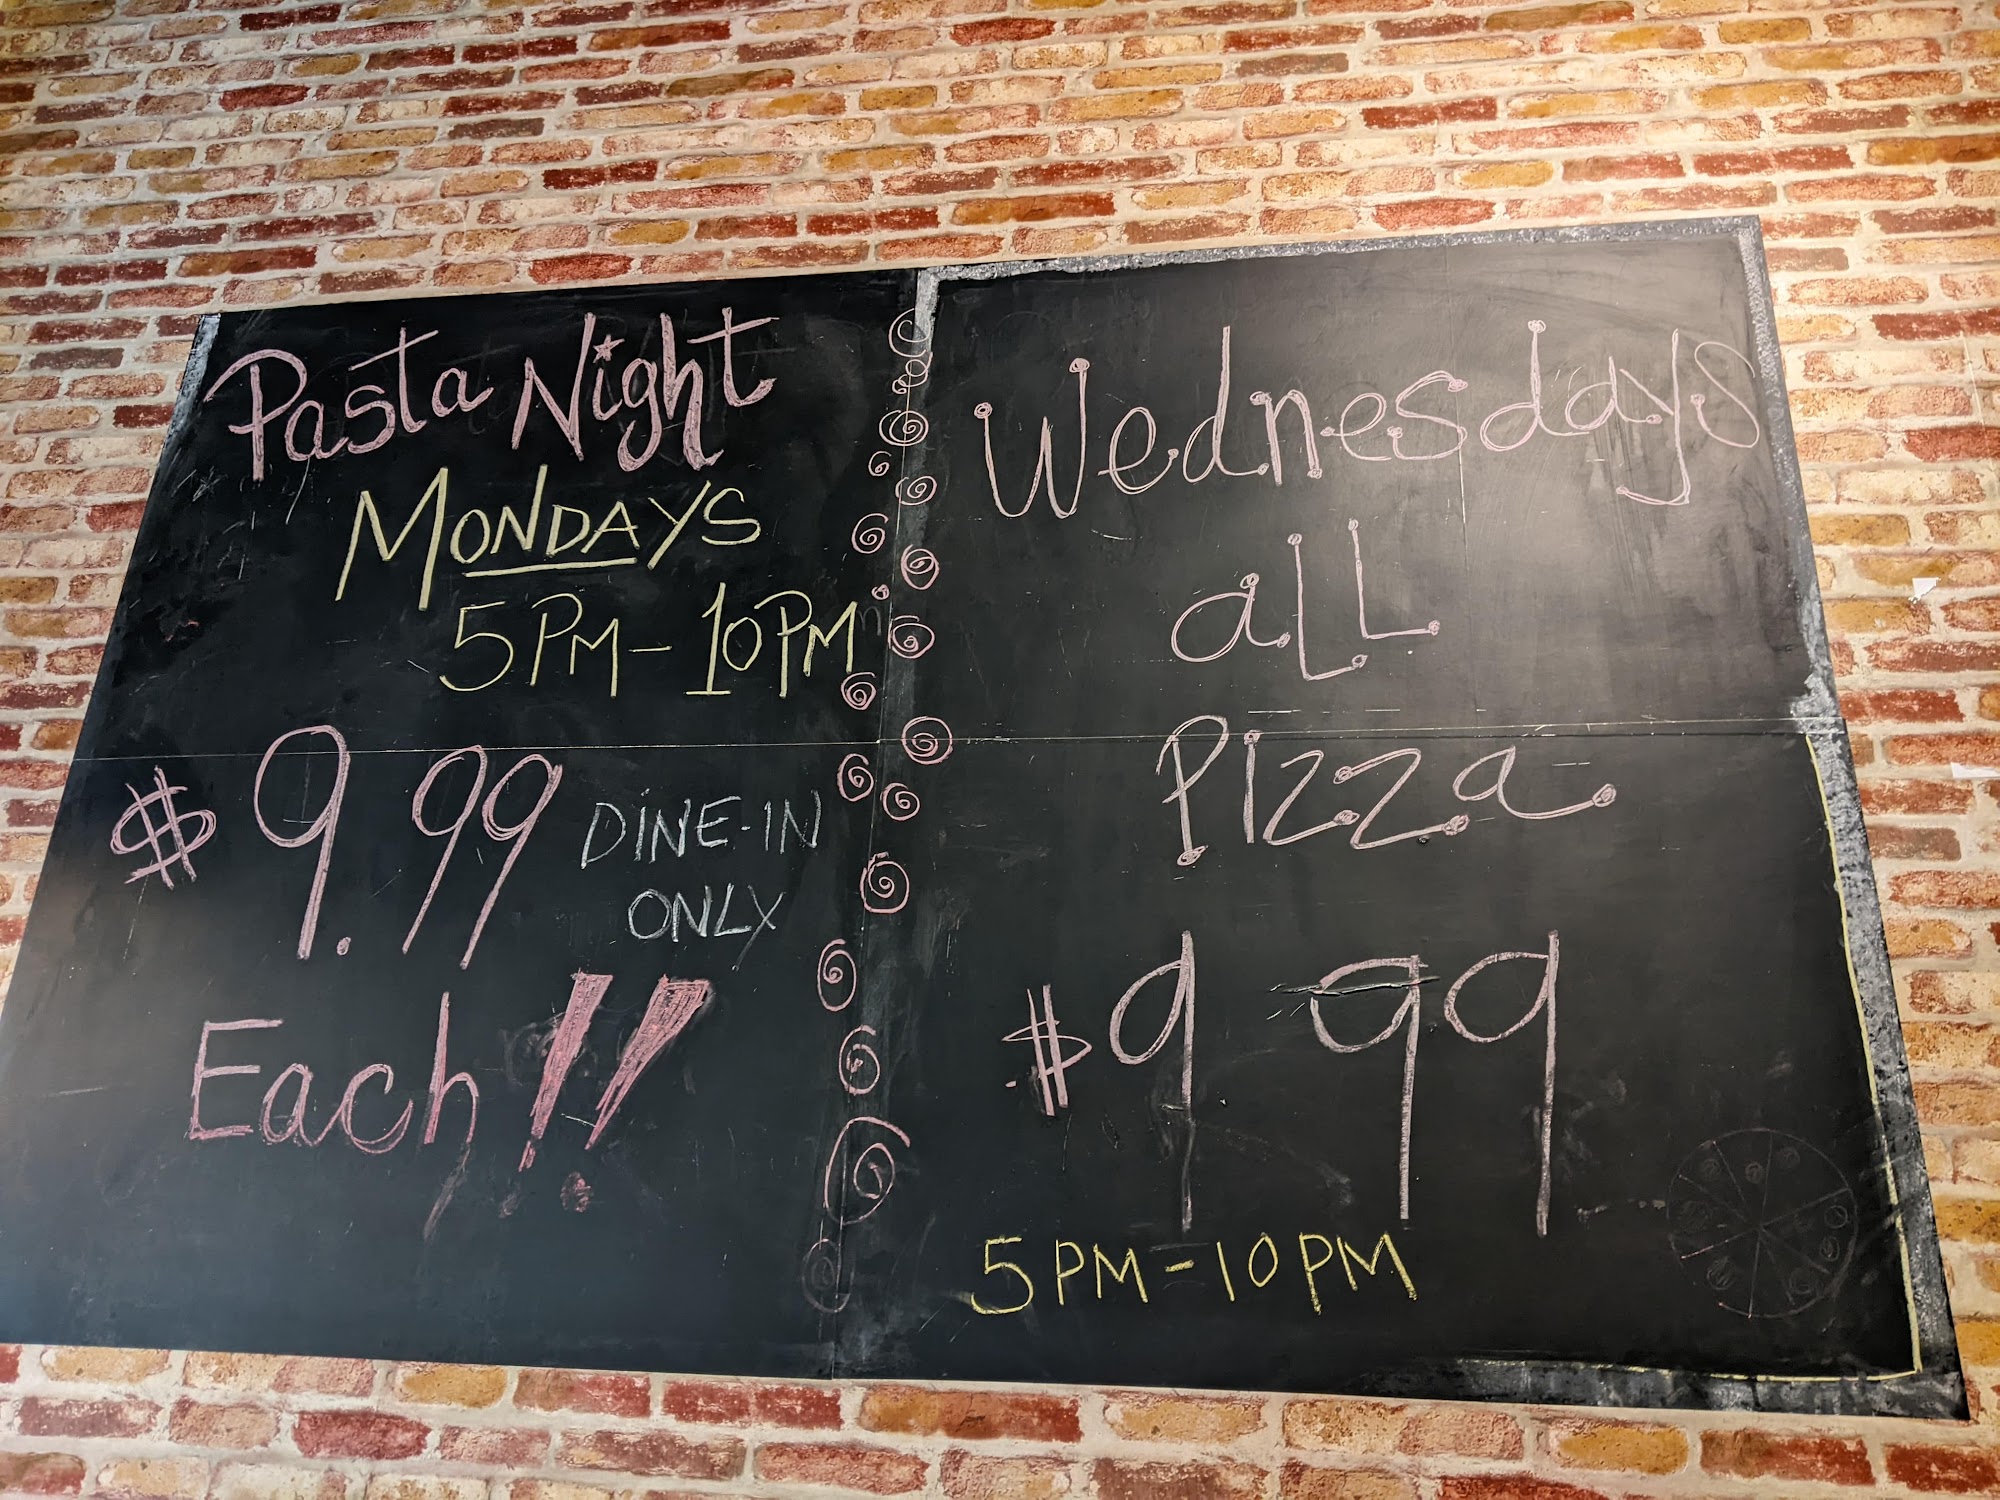 Pasta Night
MONDAYS
5PM-10PM
$9.99 DINE-IN
ONLY
Each!!
Wednesdays
all
Pizza
$9 99
5PM-10PM